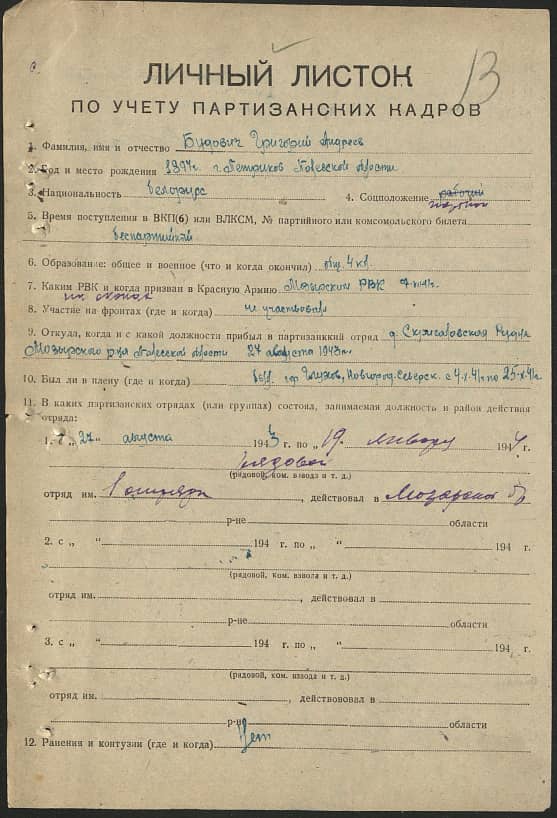 13
ЛИЧНЫЙ ЛИСТОК
ПО УЧЕТУ ПАРТИЗАНСКИХ КАДРОВ
1. Фамилия, имя и отчество Будович Григорий Андреев
2. Год и место рождения 1897г. г. Петриков Полесской области
3. Национальность белорус 4. Соцположение рабочий
5. Время поступления в ВКП(б) или ВЛКСМ, № партийного или комсомольского билета
беспартийный
6. Образование: общее и военное (что и когда окончил) общ. 4 кл.
7. Каким РВК и когда призван в Красную Армию Мозырским РВК
8. Участие на фронтах (где и когда) не участвовал
9. Откуда, когда и с какой должности прибыл в партизанский отряд д. Рудня
Мозырского р-на Полесской области 27 августа 1943г.
10. Был ли в плену (где и когда) был. гор Глухов, Новгород-Северск. с 4-X-41г по 25-X-41г
11. В каких партизанских отрядах (или группах) состоял, занимаемая должность и район действия
отряда:
1. с „ 27 “ августа 1943 г. по „ 19 “ январу 1944 г.
рядовой
(рядовой, ком. взвода и т. д.)
отряд им. 1 отряда, действовал в Мозырской бр
р-не области
2. с „ “ 194 г. по „ “ 194 г.
(рядовой, ком. взвола и т. д.)
отряд им. , действовал в
р-не области
3. с „ “ 194 г. по „ “ 194 г.
(рядовой, ком. взвода и т. д.)
отряд им. , действововал в
р-не области
12. Ранения и контузии (где и когда) Нет